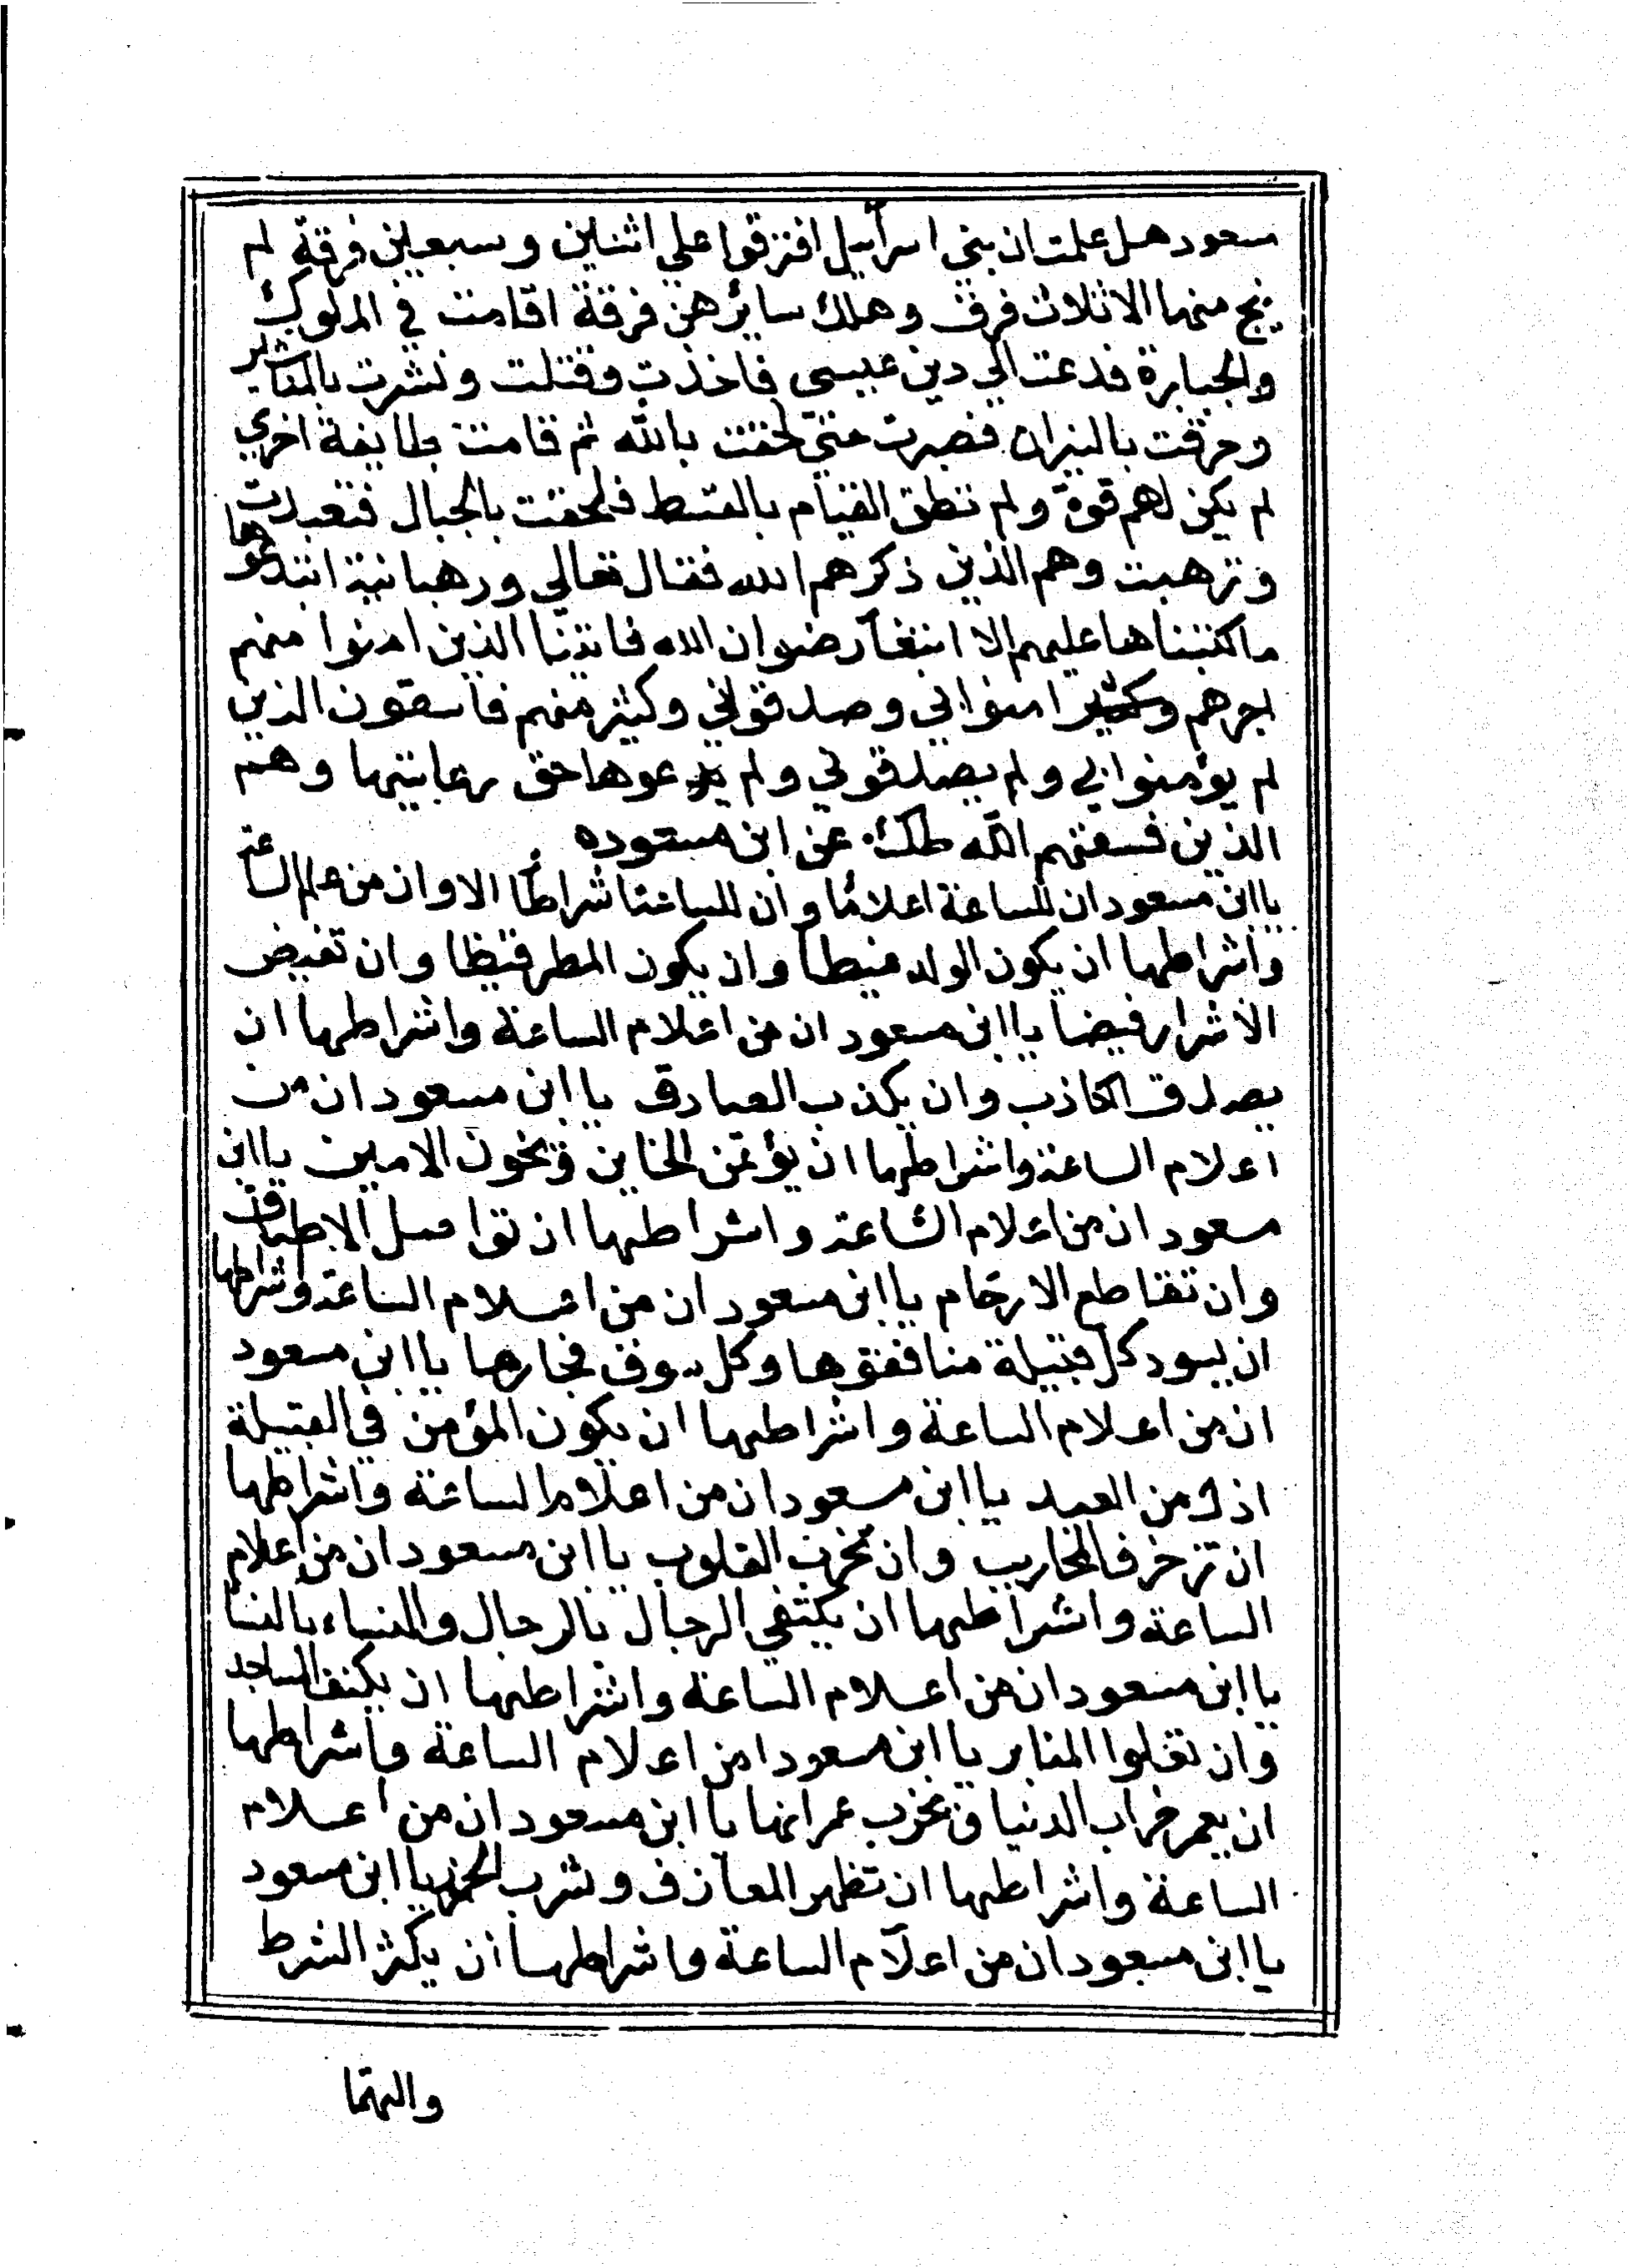 سعود هل علمت ان بني اسرآييل افترقوا علي اثنين وسبعين فرقة لم
ينج منها الاثلاث فرق وهلك سايرهن فرقة اقامت في الملوك
والجبابرة فدعت الي دين عيسي فاخذت وقتلت ونشرت بالمناشير
وحرقت بالنيران فصبرت حتي لحقت بالله ثم قامت طايفة اخري
لم يكن لهم قوة ولم تطق القيام بالقسط فلحقت بالجبال فتعبدت
وترهبت وهم الذين ذكرهم الله فقال تعالي ورهبانية ابتدعوها
ماكتبناها عليهم الا ابتغآ رضوان الله فاتينا الذين امنوا منهم
اجرهم وكثير امنوا بي وصدقوني وكثير منهم فاسقون الذين
لم يؤمنوا بي ولم يصدقوني ولم يرعوها حق رعايتها وهم
الذين فسقهم الله طك عن ابن مسعوده
يا ابن مسعود ان للساعة اعلامًا وان للساعة اشراطًا الاوان من علم الساعة
واشراطها ان يكون الولد غيظا وان يكون المطر قيظا وان تفيض
الاشرار فيضا يا ابن مسعود ان من اعلام الساعة واشراطها ان
يصدق الكاذب وان يكذب الصادق يا ابن مسعود ان من
اعلام الساعة واشراطها ان يؤتمن الخاين ويخون الامين يا ابن
مسعود ان من اعلام الساعة واشراطها ان تواصل الاطباق
وان تقاطع الارحام يا ابن مسعود ان من اعلام الساعة واشراطها
ان يسود كل قبيلة منافقوها وكل سوق فجارها يا ابن مسعود
ان من اعلام الساعة واشراطها ان يكون المؤمن في القبيلة
اذل من العبد يا ابن مسعود ان من اعلام الساعة واشراطها
ان تزخرف المحاريب وان تخرب القلوب يا ابن مسعود ان من اعلام
الساعة واشراطها ان يكتفي الرجال بالرجال والنساء بالنسا
يا ابن مسعود ان من اعلام الساعة واشراطها ان يكنف المساجد
وان تعلوا المنابر يا ابن مسعود ا من اعلام الساعة واشراطها
ان يعمر خراب الدنيا ويخرب عمرانها يا ابن مسعود ان من اعلام
الساعة واشراطها ان تظهر المعازف وشرب الخمر يا ابن مسعود
يا ابن مسعود ان من اعلآم الساعة واشراطها ان يكثر الشرط
والهما